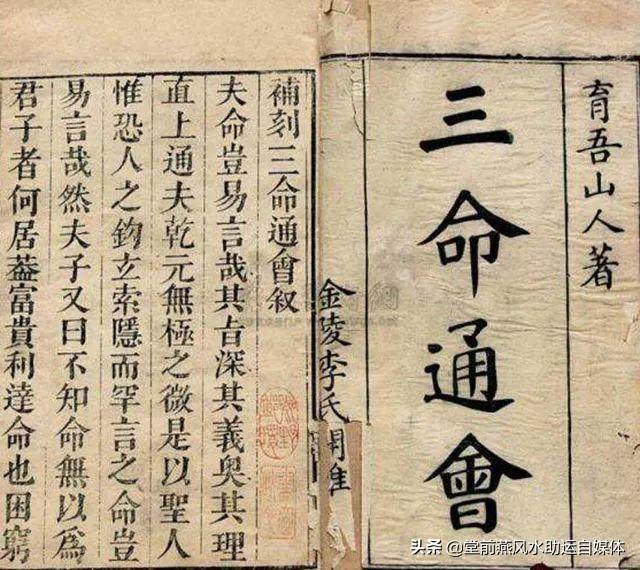 育吾山人著
三命通會
金陵李氏
補刻三命通會叙
夫命豈易言哉其㫖深其義奥其理
直上通夫乾元無極之微是以聖人
惟恐人之鈎玄索隱而罕言之命豈
易言哉然夫子又曰不知命無以爲
君子者何居葢富貴利達命也困窮
头条 @堂前燕风水助运自媒体